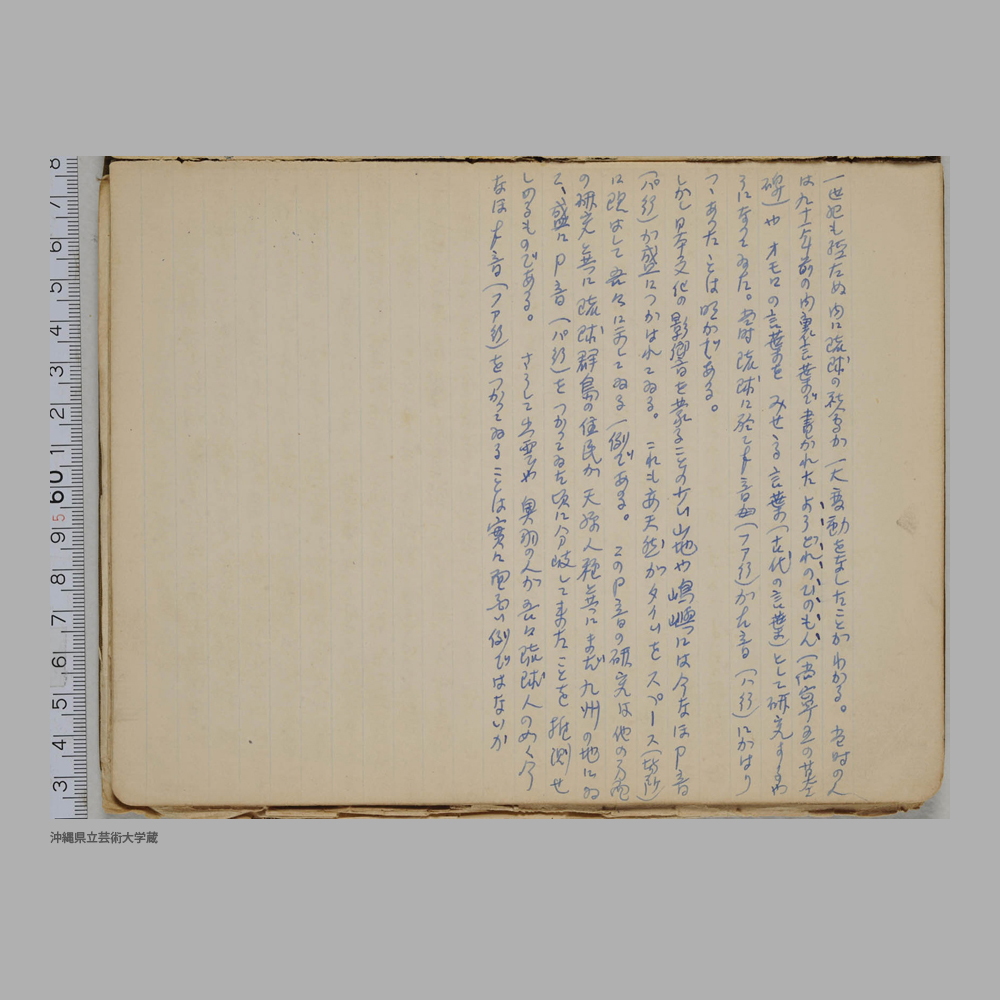 一世紀も経たぬ内に琉球の秋害か一大変動をなしたことがわかる。当時の人
は九十年前の内裏言葉で書かれたようどれのひのもん(尚寧王の墓
碑)やオモロの言葉をみせゝる言葉(古代の言葉)として研究するや
うになつてゐた。当時琉球に於てF音(ファ行)がh音(ハ行)にかはり
つゝあつたことは明かである。
しかし日本文化の影響を蒙ることの少い山地や嶋嶼には今なほP音
(パ行)が盛につかはれてゐる。これもあ天然がタイムをスペース(場所)
に現はして吾々に示してゐる一例である。このP音の研究は他の方面
の研究と共に琉球群島の住民が天孫人種と共にまだ九州の地にゐ
て、盛にP音(パ行)をつかつてゐた頃に分岐して来たことを推測せ
しめるものである。さうして出雲や奥羽の人が吾々琉球人の如く今
なほF音(ファ行)をつかつてゐることは實に面白い例ではないか
沖縄県立芸術大学蔵
8 7 6 5 4 3 2 1 60 9 8 7 6 5 4 3
95